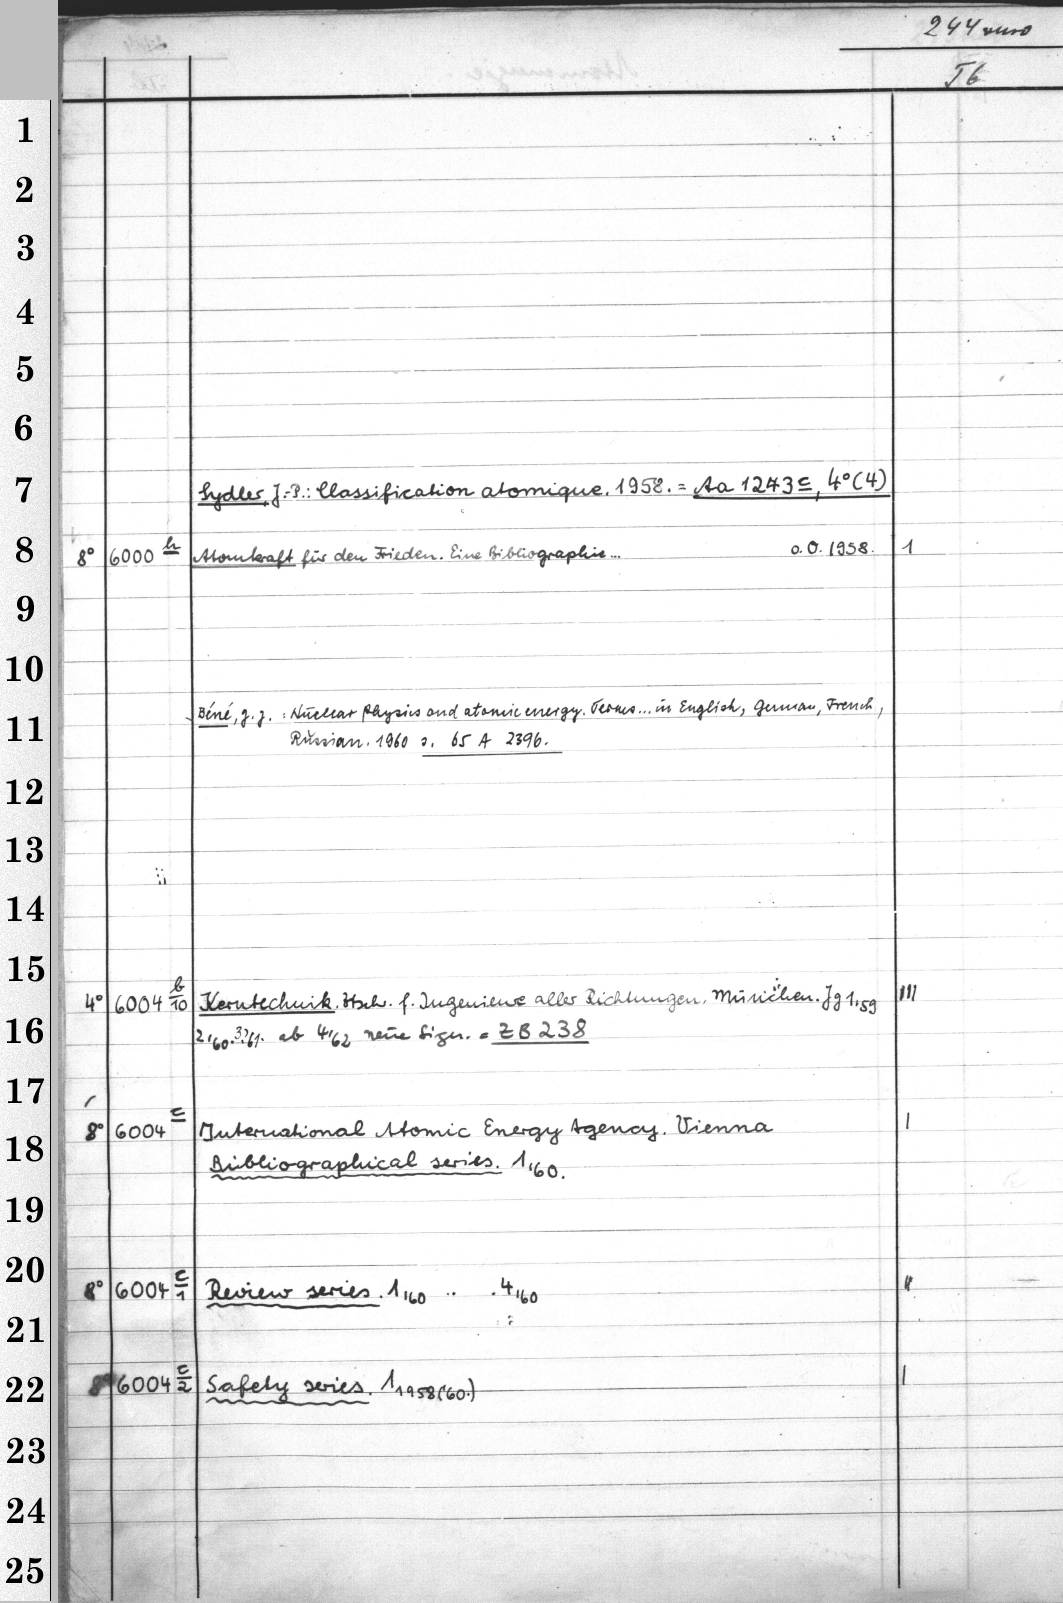 244 verso
Tb
1
2
3
4
5
6
7 Sydler, J.-P.: Classification atomique. 1958. = Aa 1243 c, 4° (4)
8 8° 6000 h Atomkraft für den Frieden. Eine Bibliographie... o.O. 1958. 1
9
10
11 Béné, G. J.: Nuclear physics and atomic energy. Terms... in English, German, French,
Russian. 1960 s. 65 A 2396.
12
13
14
15 4° 6004 b/10 Kerntechnik. Ztschr. f. Ingenieure aller Richtungen. München. Jg 1,59 III
16 2,60. 3,61. ab 4,62 neue Sign. = ZB 238
17
18 8° 6004 c International Atomic Energy Agency. Vienna I
Bibliographical series. 1,60.
19
20 8° 6004 c/1 Review series. 1,60 .. 4,60 II
21
22 8° 6004 c/2 Safety series. 1 1958(60.) I
23
24
25